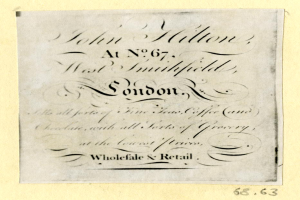 John Hilton,
At No. 67,
West Smithfield,
London,
Sells all sorts of Fine Teas, Coffee, and
Chocolate, with all Sorts of Grocery,
at the lowest Prices,
Wholeſale & Retail.
68.63